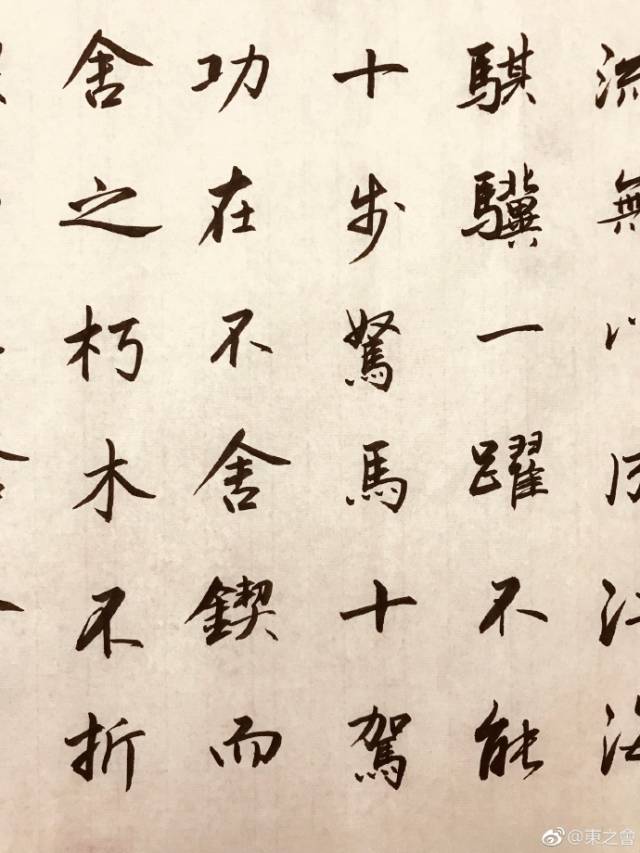 流無以成江海
騏驥一躍不能
十步駑馬十駕
功在不舍鍥而
舍之朽木不折
@東之會